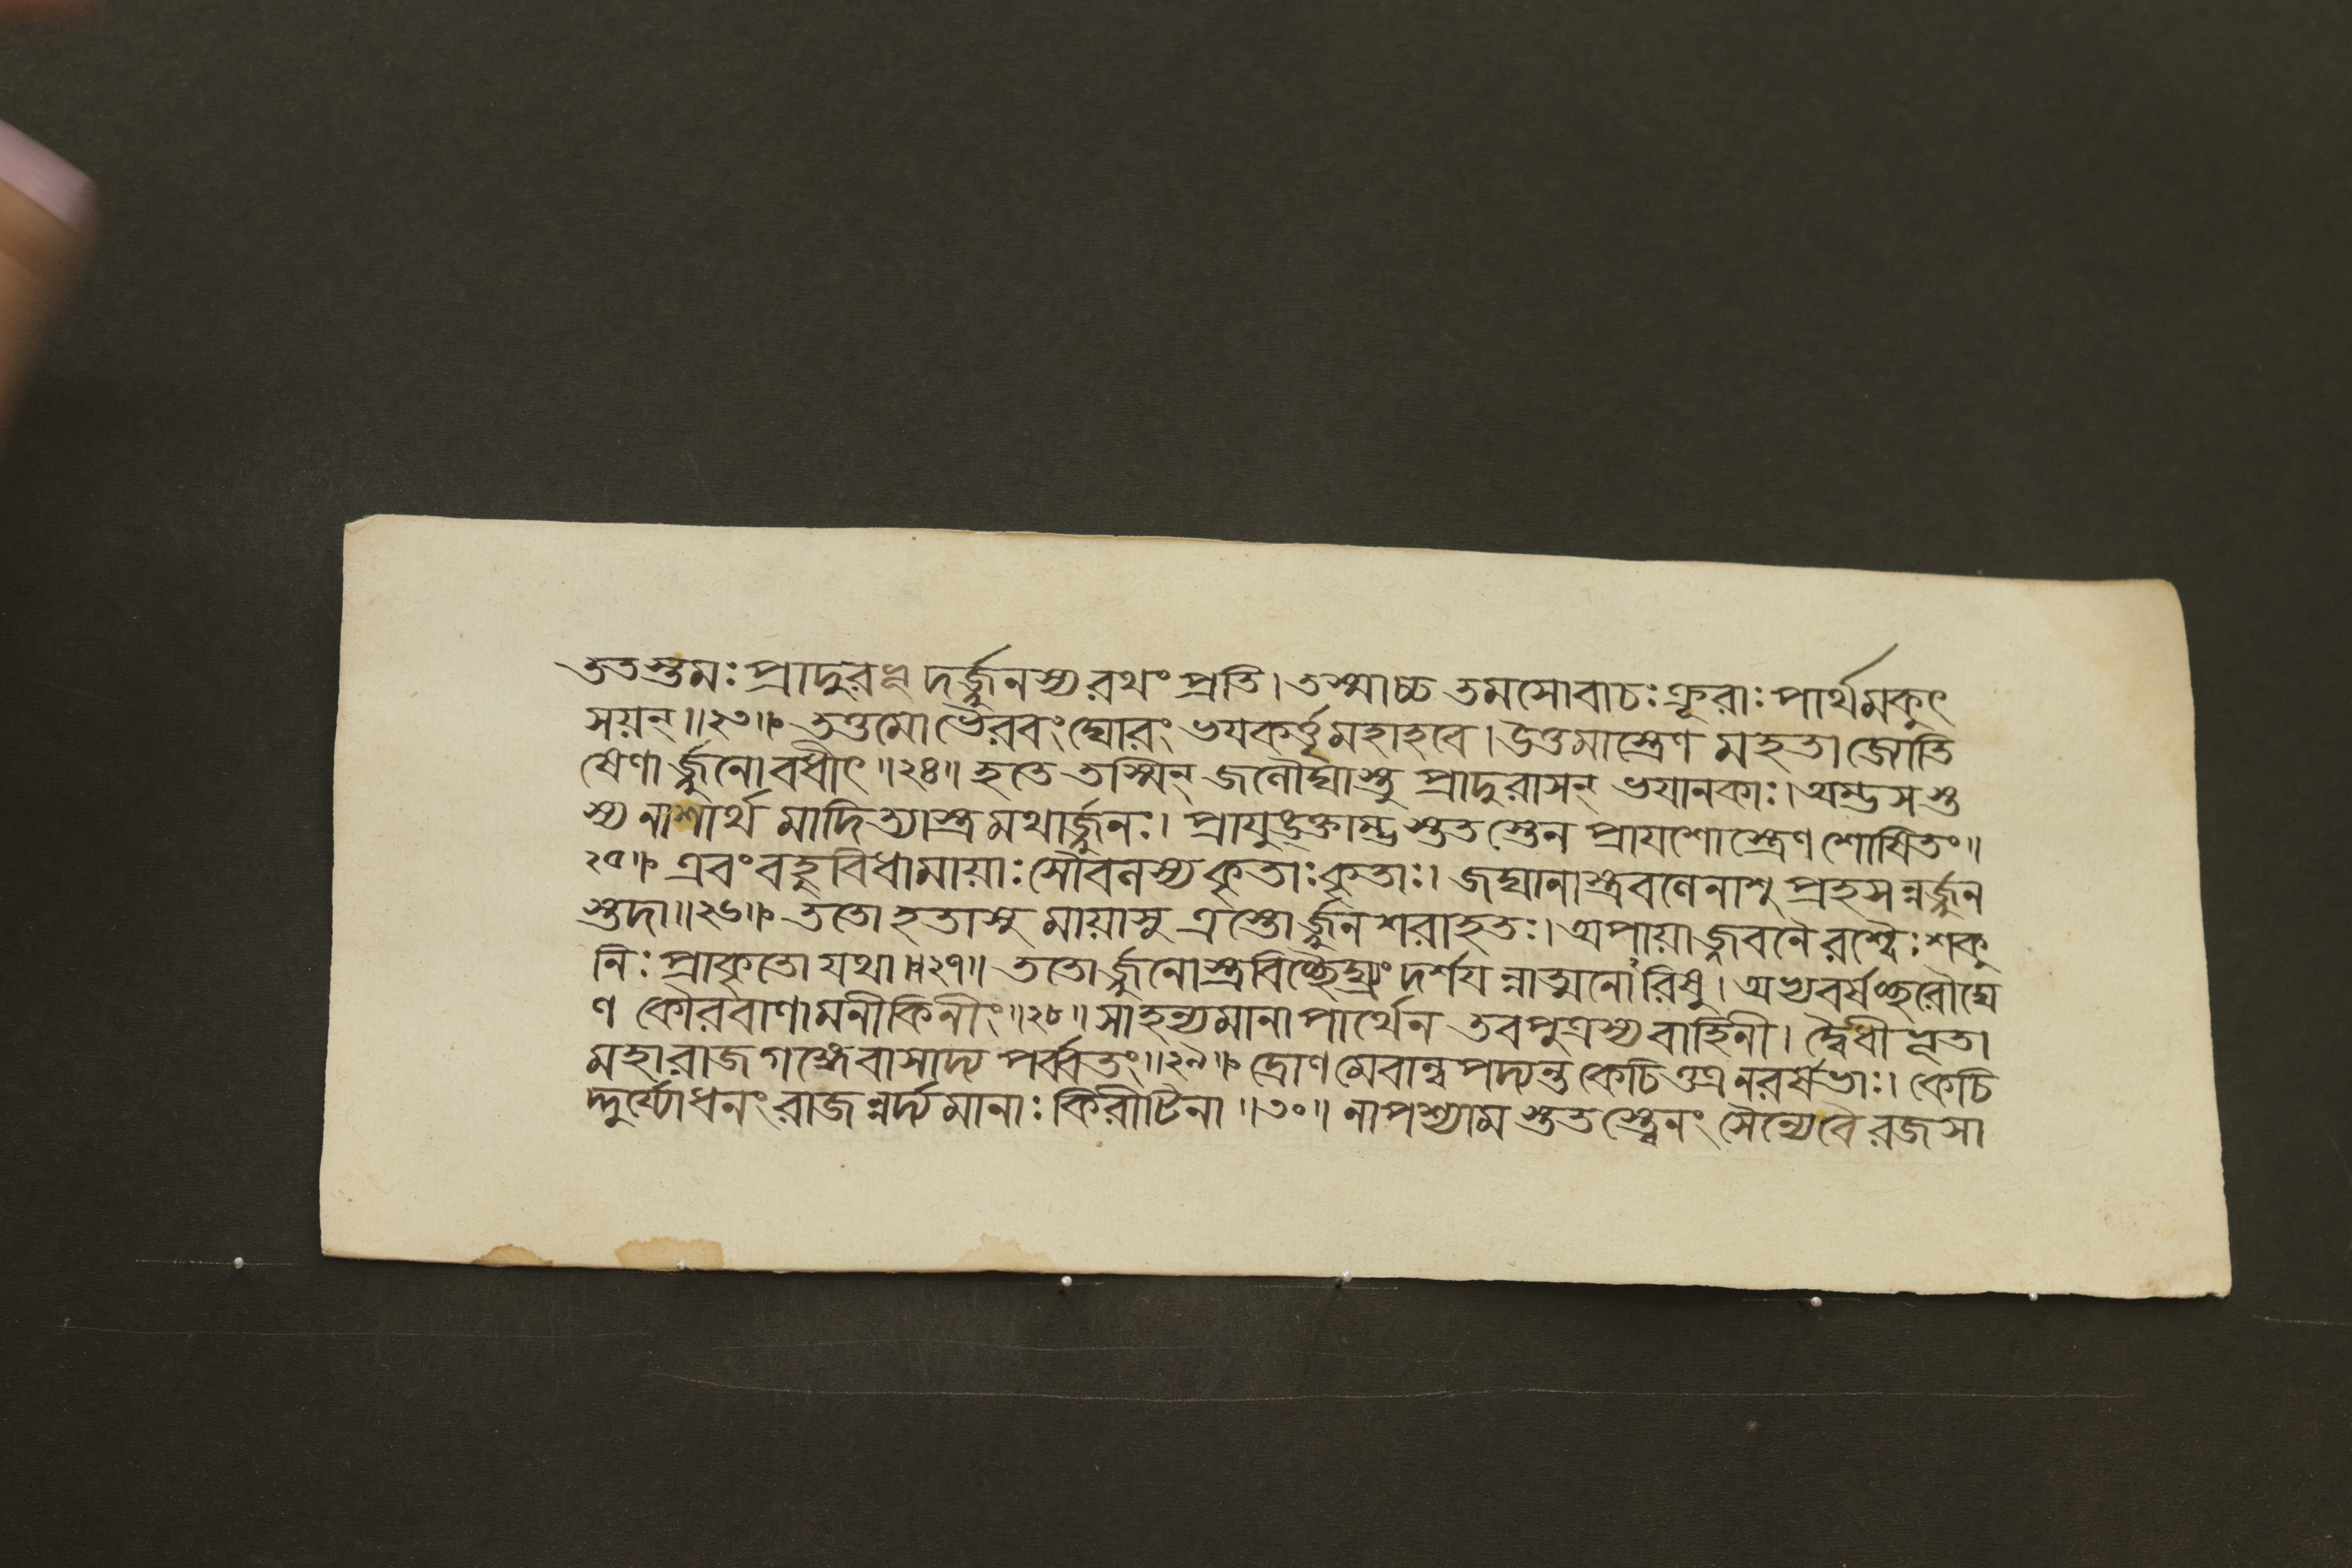 ততস্তমঃ প্রাদুরভূদর্জ্জুনস্য রথং প্রতি। তস্মাচ্চ তমসোবাচঃ ক্রূরাঃ পার্থমভর্ৎ
সয়ন্॥২৩॥ তত্তমো ভৈরবং ঘোরং ভযকর্ত্তৃ মহাহবে। উত্তমাস্ত্রেণ মহতা জোতি
ষেণার্জ্জুনোবধীৎ॥২৪॥ হতে তস্মিন্ জলৌঘাস্তু প্রাদুরাসন্ ভযানকাঃ। অম্ভসস্ত
স্য নাশার্থ মাদিত্যাস্ত্রমথার্জ্জুনঃ। প্রাযুঙ্ক্তাম্ভস্ততস্তেন প্রাযশোস্ত্রেণ শোষিতং॥
২৫॥ এবং বহুবিধামায়াঃ সৌবলস্য কৃতাঃকৃতাঃ। জঘানাস্ত্রবলেনাশু প্রহসন্নর্জ্জুন
স্তদা॥২৬॥ ততো হতাসু মায়াসু ত্রস্তোর্জ্জুনশরাহতঃ। অপায়াজ্জবনৈরশ্বৈঃ শকু
নিঃ প্রাকৃতো যথা॥২৭॥ ততোর্জ্জুনোস্ত্রবিচ্ছৈঘ্র্যং দর্শযন্নাত্মনোরিষু। অভ্যবর্ষচ্ছরৌঘে
ণ কৌরবাণামনীকিনীং॥২৮॥ সাহন্যমানা পার্থেন তবপুত্রস্য বাহিনী। দ্বৈধীভূতা
মহারাজ গঙ্গেবাসাদ্য পর্ব্বতং॥২৯॥ দ্রোণমেবান্বপদ্যন্ত কেচিত্তত্র নরর্ষভাঃ। কেচি
দ্দুর্য্যোধনং রাজন্নর্দ্দ্যমানাঃ কিরীটিনা॥৩০॥ নাপশ্যাম ততস্ত্বেনং সৈন্যেবৈ রজসা